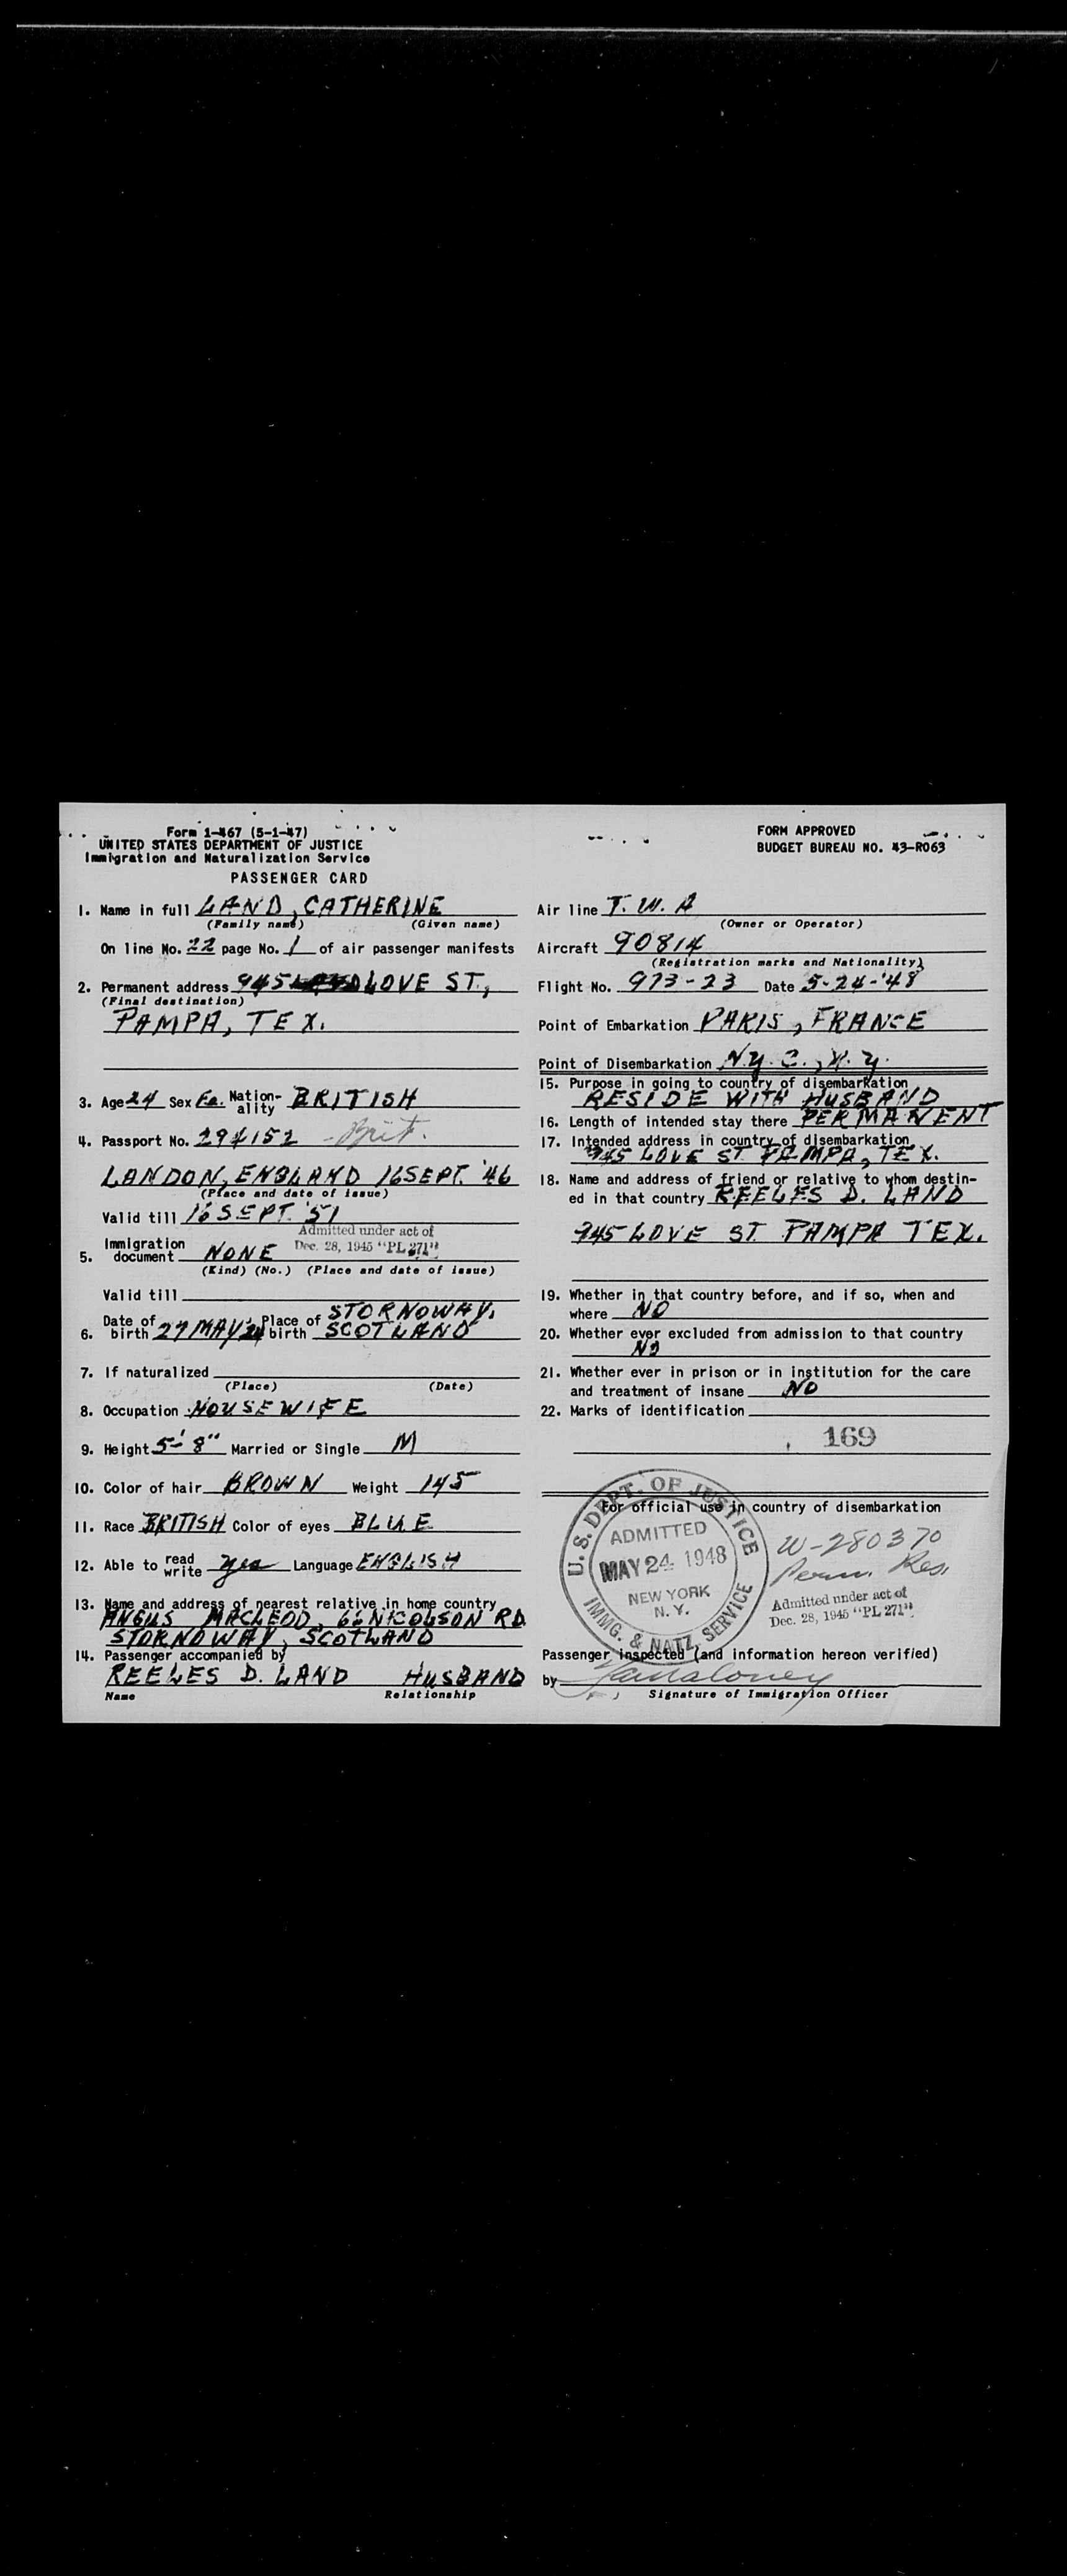 Form I-467 (5-1-47)
UNITED STATES DEPARTMENT OF JUSTICE
Immigration and Naturalization Service
PASSENGER CARD
FORM APPROVED
BUDGET BUREAU NO. 43-R063
1. Name in full LAND, CATHERINE
(Family name) (Given name)
On line No. 22 page No. 1 of air passenger manifests
2. Permanent address 945 LOVE ST.,
(Final destination)
PAMPA, TEX.
3. Age 24 Sex Fe. Nationality BRITISH
4. Passport No. 294152 - Brit.
LONDON, ENGLAND 16 SEPT. '46
(Place and date of issue)
Valid till 16 SEPT. '51
Admitted under act of
Dec. 28, 1945 "PL 271"
5. Immigration document NONE
(Kind) (No.) (Place and date of issue)
Valid till
6. Date of birth 27 MAY 24 Place of birth STORNOWAY, SCOTLAND
7. If naturalized
(Place) (Date)
8. Occupation HOUSEWIFE
9. Height 5' 8" Married or Single M
10. Color of hair BROWN Weight 145
11. Race BRITISH Color of eyes BLUE
12. Able to read write yes Language ENGLISH
13. Name and address of nearest relative in home country
ANGUS MACLEOD, NICOLSON RD
STORNOWAY, SCOTLAND
14. Passenger accompanied by
REELES D. LAND HUSBAND
Name Relationship
Air line T. W. A
(Owner or Operator)
Aircraft 90814
(Registration marks and Nationality)
Flight No. 973-23 Date 5-24-'48
Point of Embarkation PARIS, FRANCE
Point of Disembarkation N.Y.C., N.Y.
15. Purpose in going to country of disembarkation
RESIDE WITH HUSBAND
16. Length of intended stay there PERMANENT
17. Intended address in country of disembarkation
945 LOVE ST PAMPA, TEX.
18. Name and address of friend or relative to whom destin-
ed in that country REELES D. LAND
945 LOVE ST. PAMPA TEX.
19. Whether in that country before, and if so, when and
where NO
20. Whether ever excluded from admission to that country
NO
21. Whether ever in prison or in institution for the care
and treatment of insane NO
22. Marks of identification
169
For official use in country of disembarkation
U.S. DEPT. OF JUSTICE
ADMITTED
MAY 24 1948
NEW YORK
N. Y.
IMMG. & NATZ. SERVICE
W-280370
Perm. Res.
Admitted under act of
Dec. 28, 1945 "PL 271"
Passenger inspected (and information hereon verified)
by
Signature of Immigration Officer